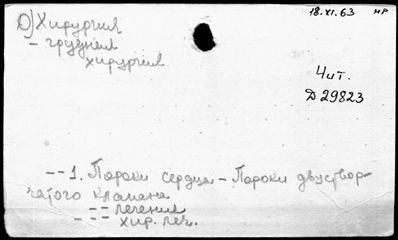 18.XI.63 НР
О) Хирургия
– грудная
хирургия
Чит.
Д 29823
--1. Пороки сердца – Пороки двуствор-
чатого клапана
-- лечения
--- хир. леч.